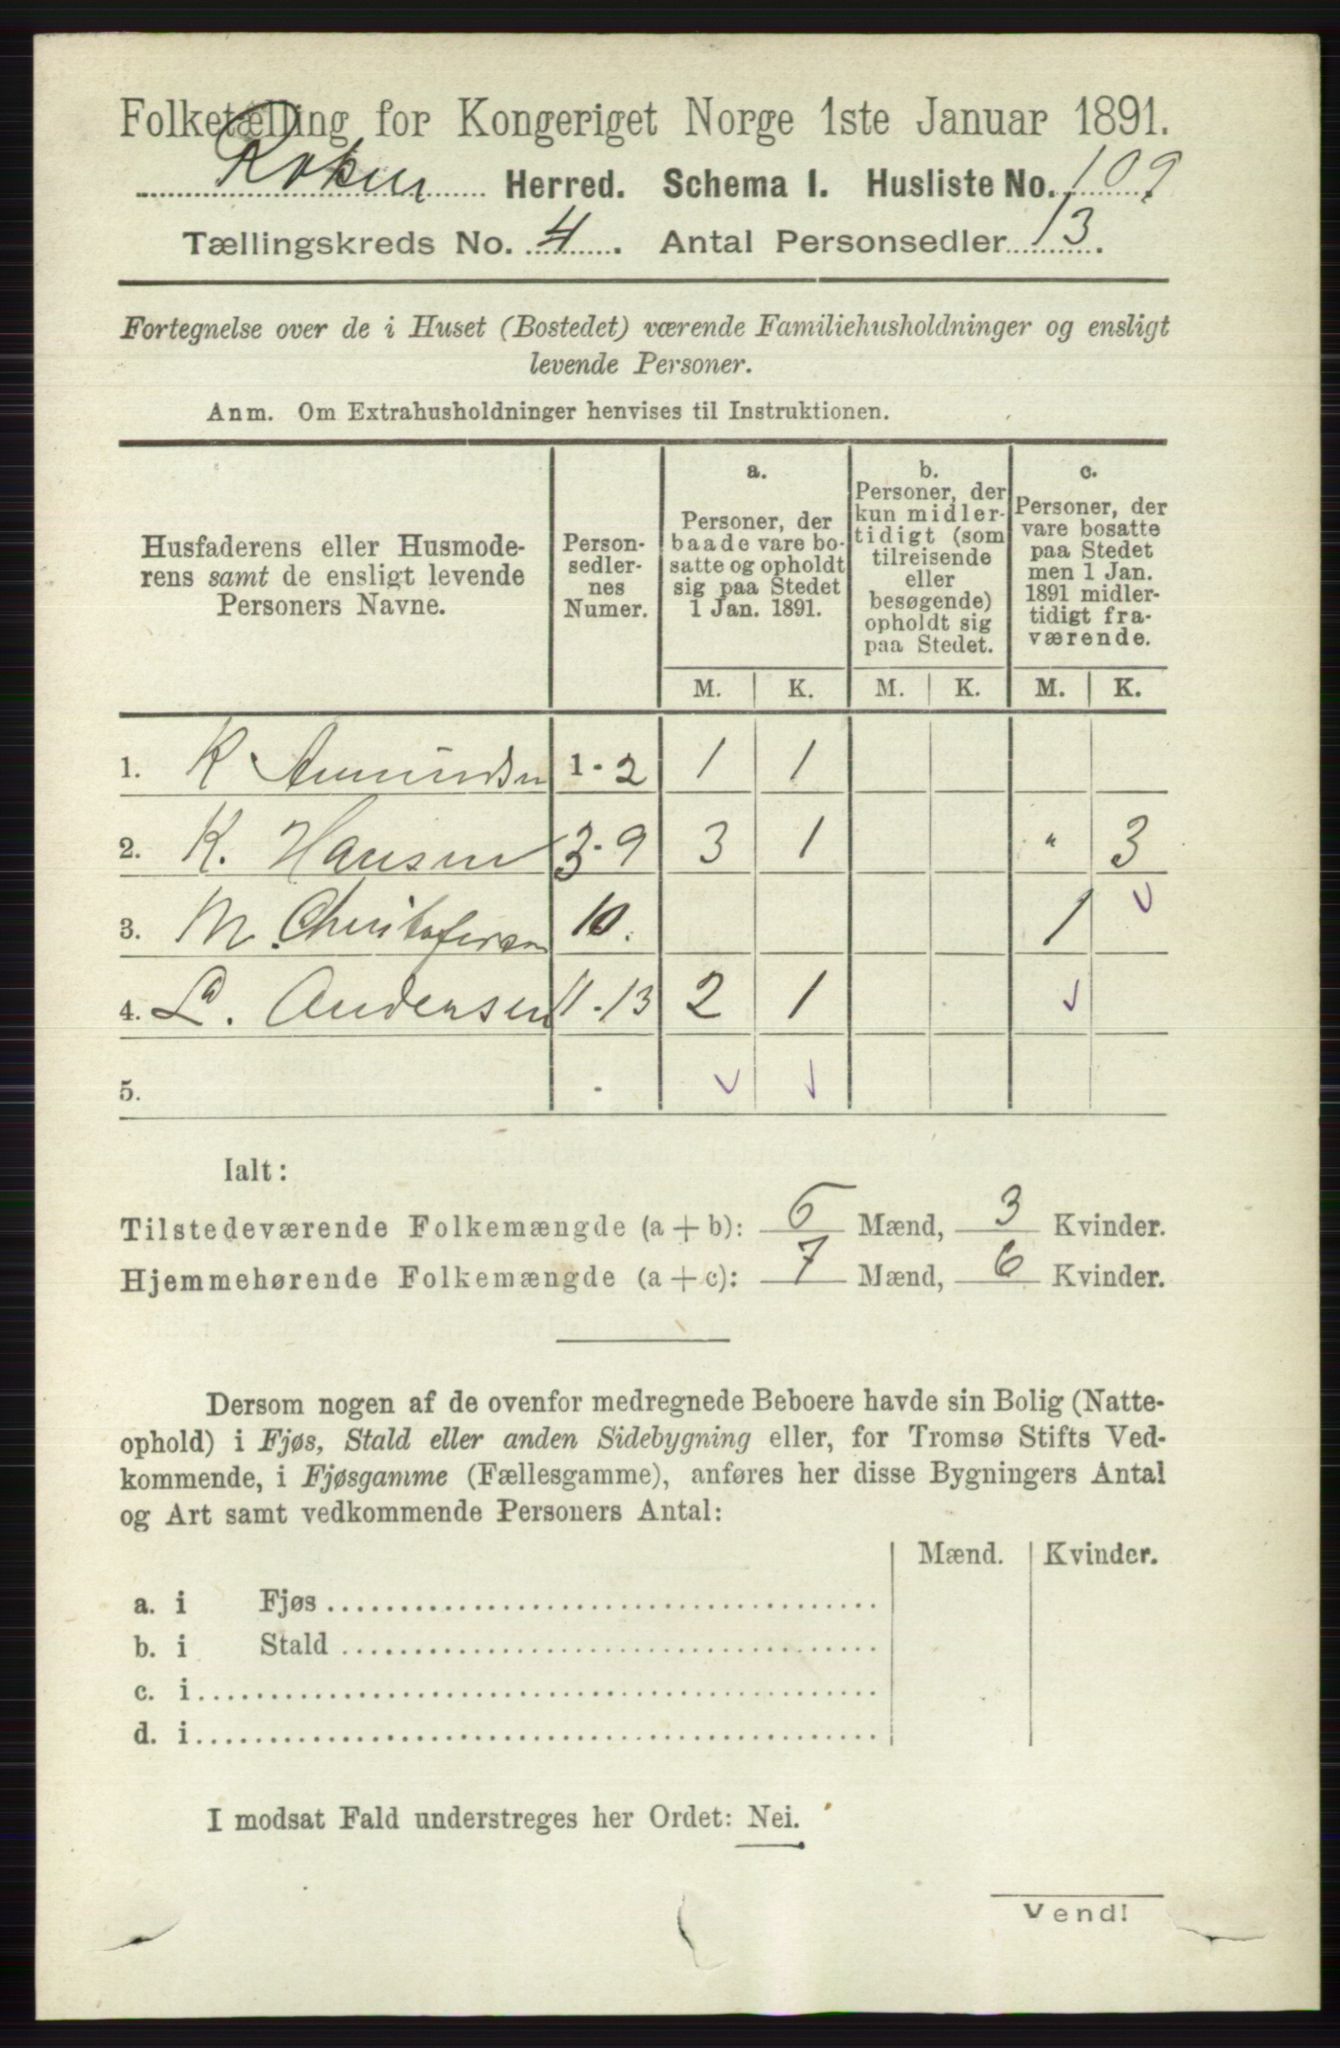 Folketælling for Kongeriget Norge 1ste Januar 1891.
Røken Herred. Schema I. Husliste No. 109.
Tællingskreds No. 4. Antal Personsedler 13.
Fortegnelse over de i Huset (Bostedet) værende Familiehusholdninger og ensligt
levende Personer.
Anm. Om Extrahusholdninger henvises til Instruktionen.
Husfaderens eller Husmode-
rens samt de ensligt levende
Personers Navne.
Person-
sedler-
nes
Numer.
a.
Personer, der
baade vare bo-
satte og opholdt
sig paa Stedet
1 Jan. 1891.
b.
Personer, der
kun midler-
tidigt (som
tilreisende
eller
besøgende)
opholdt sig
paa Stedet.
c.
Personer, der
vare bosatte
paa Stedet
men 1 Jan.
1891 midler-
tidigt fra-
værende.
M. K. M. K. M. K.
1. K Amundsen 1-2 1 1
2. K. Hansen 3-9 3 1 " 3
3. M. Christofersen 10. 1
4. L. Andersen 11-13 2 1
5. -
Ialt:
Tilstedeværende Folkemængde (a + b): 6 Mænd, 3 Kvinder.
Hjemmehørende Folkemængde (a + c): 7 Mænd, 6 Kvinder.
Dersom nogen af de ovenfor medregnede Beboere havde sin Bolig (Natte-
ophold) i Fjøs, Stald eller anden Sidebygning eller, for Tromsø Stifts Ved-
kommende, i Fjøsgamme (Fællesgamme), anføres her disse Bygningers Antal
og Art samt vedkommende Personers Antal:
Mænd. Kvinder.
a. i Fjøs
b. i Stald
c. i
d. i
I modsat Fald understreges her Ordet: Nei.
Vend!